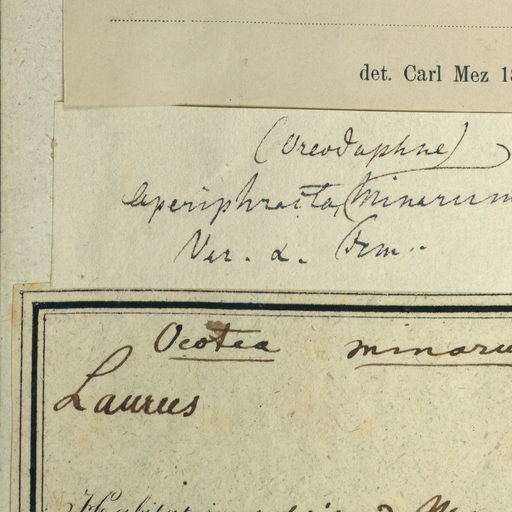 det. Carl Mez 18
(Oreodaphne)
Aperiphracta, Minarum
Var. α. Fem..
Ocotea minaru
Laurus
Habitat in